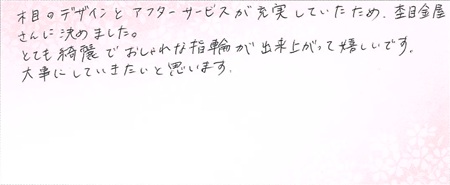 木目のデザインとアフターサービスが充実していたため、杢目金屋
さんに決めました。
とても綺麗でおしゃれな指輪が出来上がって嬉しいです。
大事にしていきたいと思います。